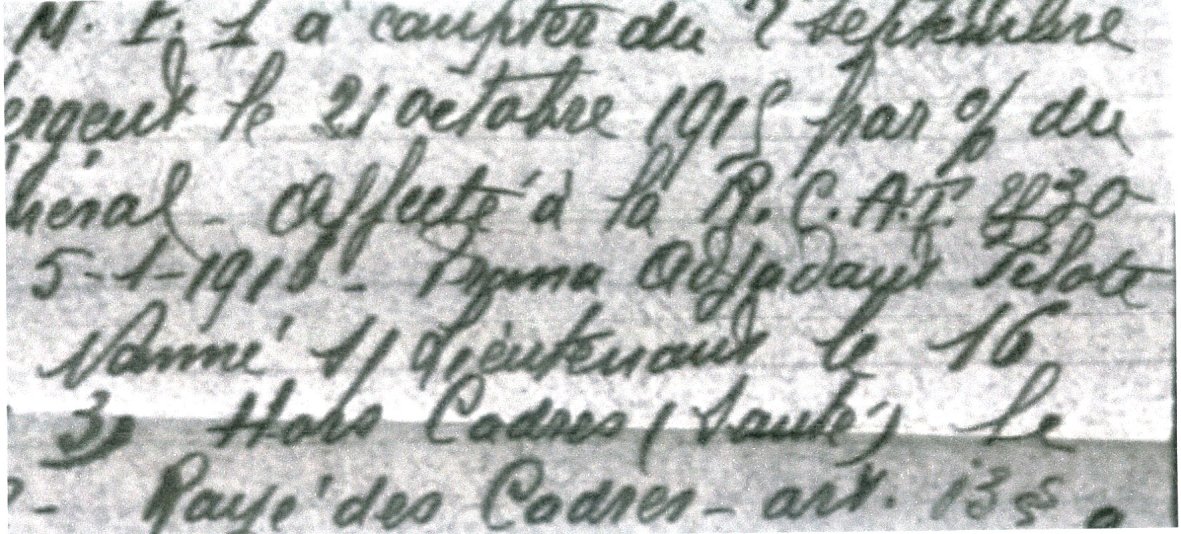 M. F. 1 à compter du 2 septembre
ergent le 21 octobre 1915 par % du
néral - Affecté à la R.C.A.T. 230
5-1-191 - Promu Adjudant Pilote
Nommé s/ Lieutenant le 16
Hors Cadres (Santé) le
- Rayé des Cadres - art.